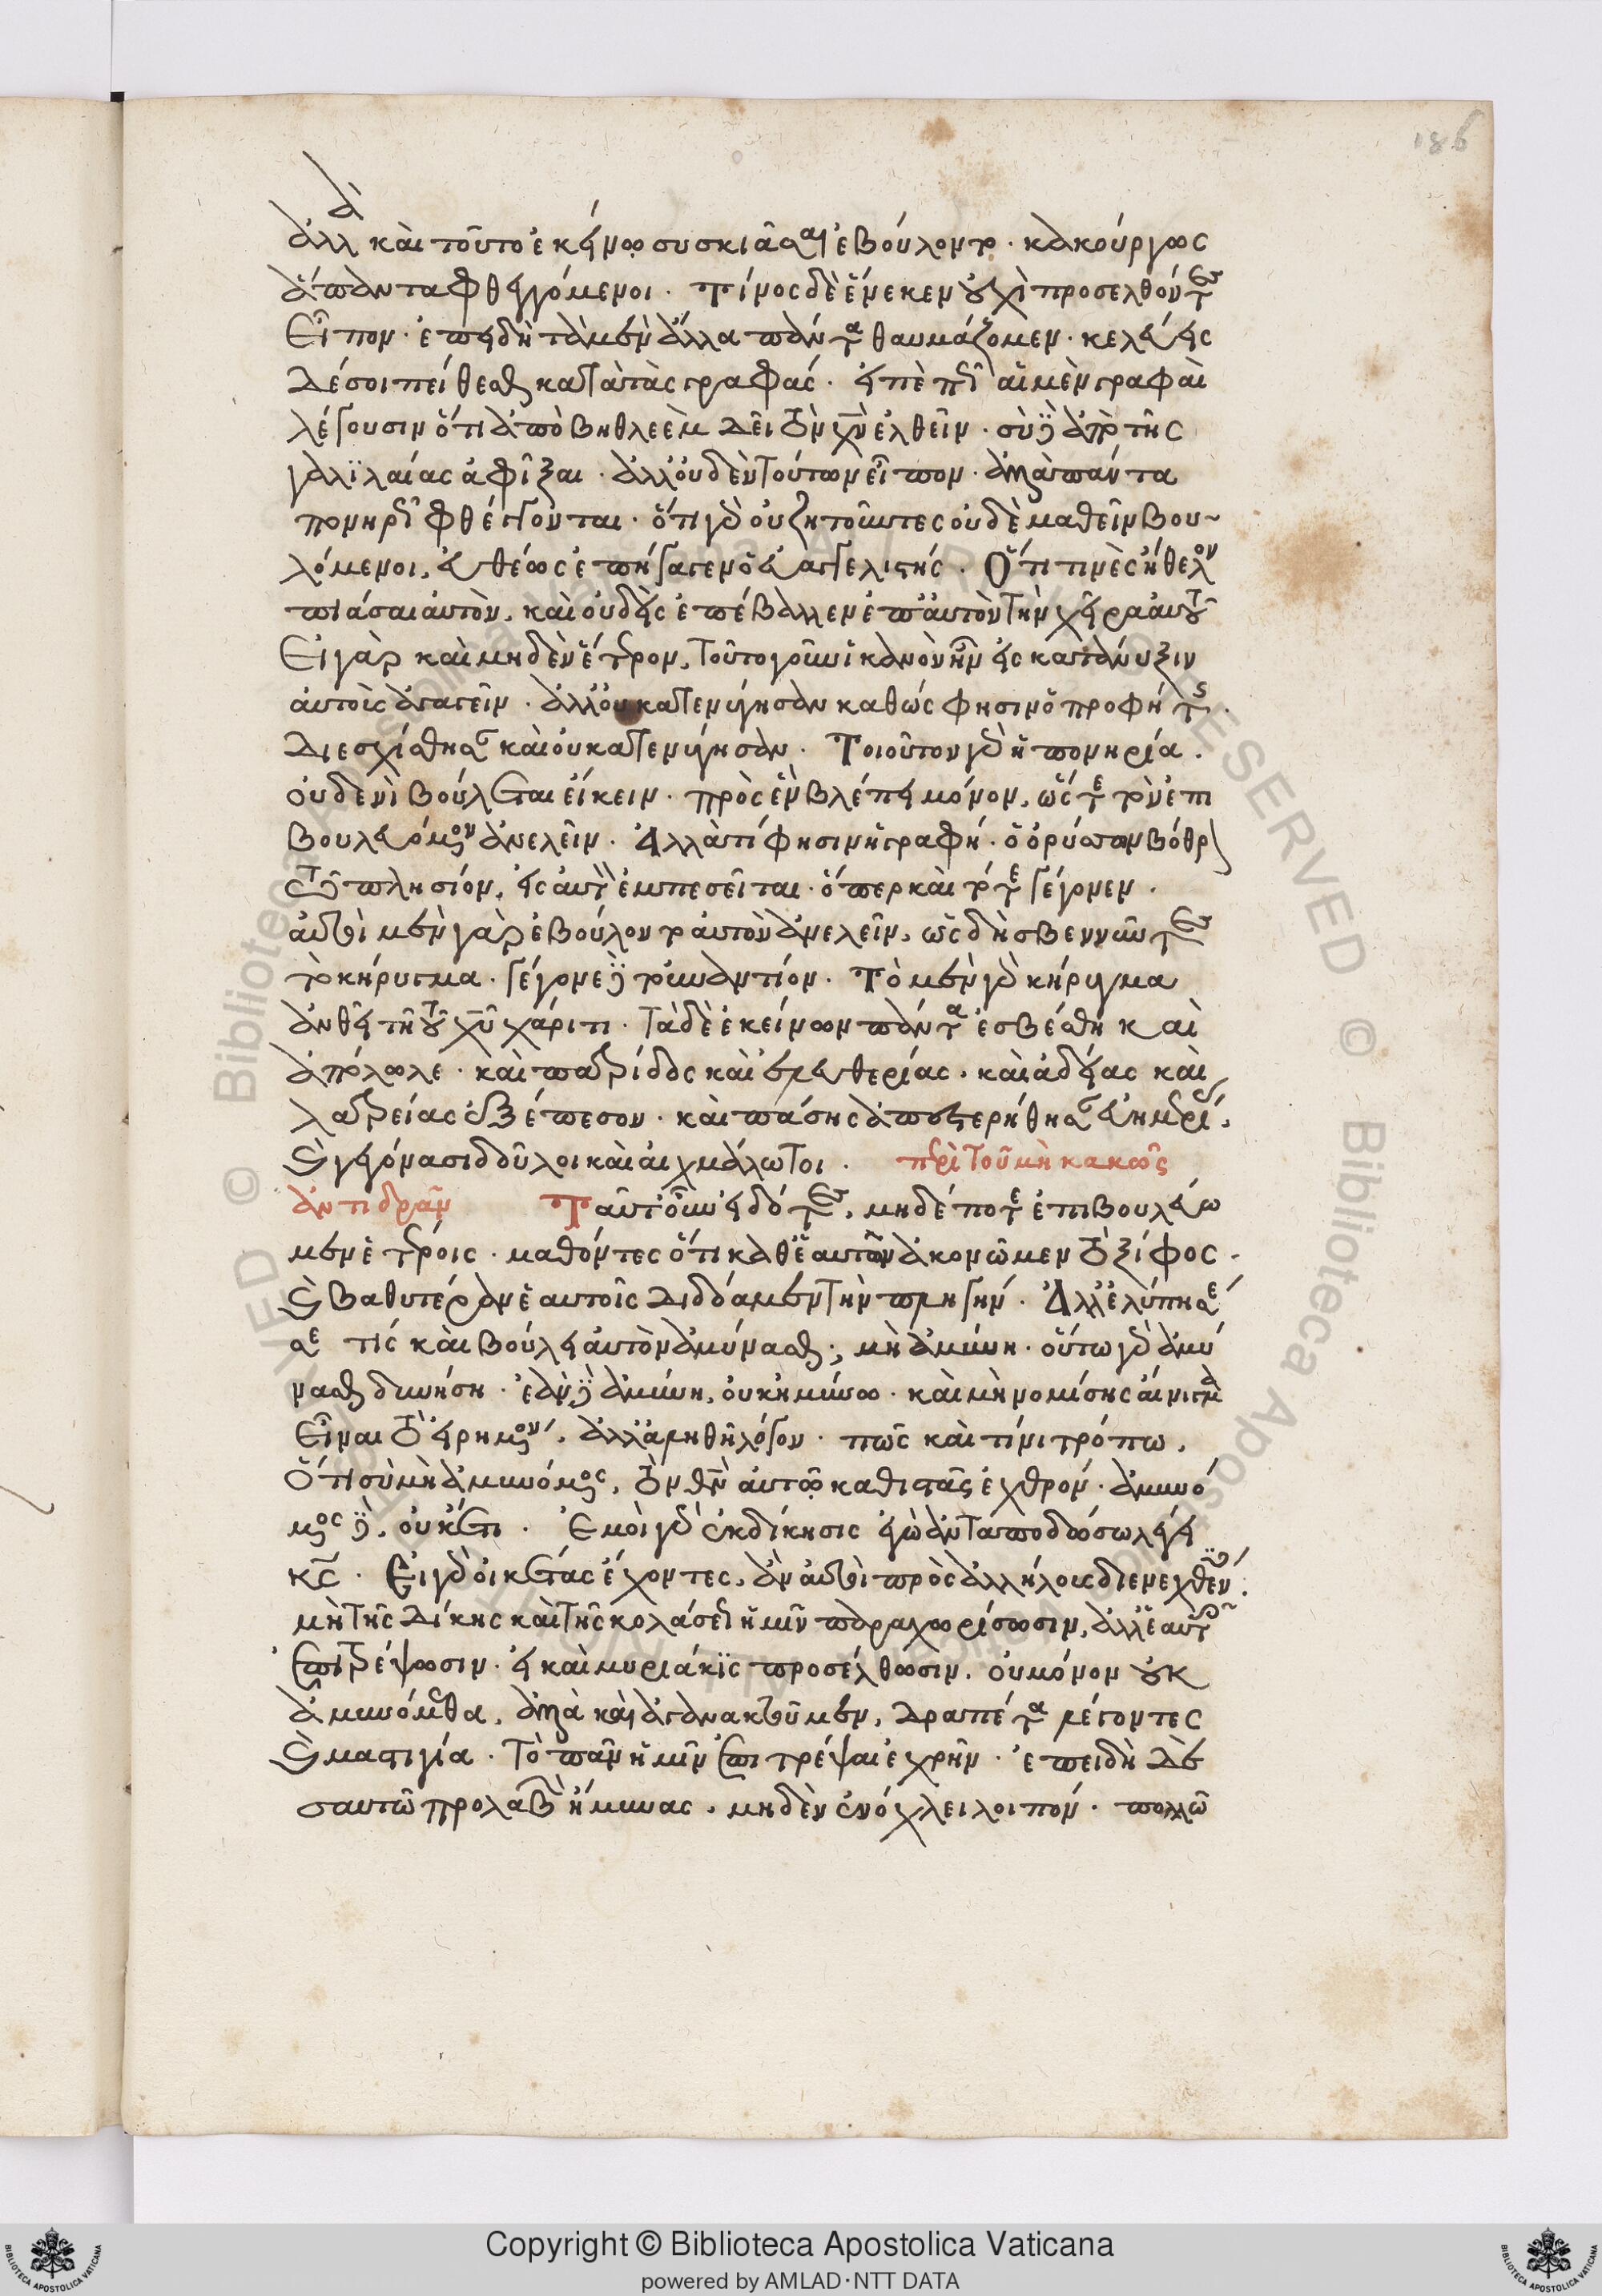 186
ἀλλὰ καὶ τοῦτο ἐκείνῳ συσκιᾶσαι ἐβούλοντο. κακούργως
ἅπαντα φθεγγόμενοι. Τίνος δὲ ἕνεκεν οὐχὶ προσελθόντες
εἶπον. ἐπειδὴ τὰ μὲν ἄλλα πάντα θαυμάζομεν. κελεύεις
δέ σοι πείθεσθαι κατὰ τὰς γραφάς. εἰπὲ πῶς αἱ μὲν γραφαὶ
λέγουσιν ὅτι ἀπὸ βηθλεὲμ δεῖ τὸν χν ἐλθεῖν. σὺ δὲ ἀπὸ τῆς
γαλιλαίας ἀφῖξαι. ἀλλ οὐδὲν τούτων εἶπον. ἀλλὰ πάντα
πονηρῶς φθέγγονται. ὅτι γὰρ οὐ ζητοῦντες οὐδὲ μαθεῖν βου
λόμενοι, εὐθέως ἐπήγαγεν ὁ εὐαγγελιστής. Ὅτι τινὲς ἤθελον
πιάσαι αὐτὸν, καὶ οὐδεὶς ἐπέβαλλεν ἐπ αὐτὸν τὴν χεῖρα αὐτοῦ
Εἰ γὰρ καὶ μηδὲν ἕτερον, τοῦτο γοῦν ἱκανὸν ἦν εἰς κατάνυξιν
αὐτοὺς ἀγαγεῖν. ἀλλ οὐ κατενύγησαν καθώς φησιν ὁ προφήτης.
Διεσχίσθησαν καὶ οὐ κατενύγησαν. Τοιοῦτον γὰρ ἡ πονηρία.
οὐδενὶ βούλεται εἴκειν. πρὸς ἓν βλέπει μόνον, ὥστε τὸν ἐπι
βουλευόμενον ἀνελεῖν. Ἀλλὰ τί φησιν ἡ γραφή. ὁ ὀρύσσων βόθρον
τῷ πλησίον, εἰς αὐτὸν ἐμπεσεῖται. ὅπερ καὶ τότε γέγονεν.
αὐτοὶ μὲν γὰρ ἐβούλοντο αὐτὸν ἀνελεῖν, ὡς δὴ σβεννῦντες
τὸ κήρυγμα. γέγονε δὲ τοὐναντίον. Τὸ μὲν γὰρ κήρυγμα
ἀνθεῖ τῇ τοῦ χυ χάριτι. τὰ δὲ ἐκείνων πάντα ἐσβέσθη καὶ
ἀπόλωλε. καὶ πατρίδος καὶ ἐλευθερίας. καὶ ἀδείας καὶ
λατρείας ἐξέπεσον. καὶ πάσης ἀπεστερήθησαν εὐημερίας.
καὶ γεγόνασι δοῦλοι καὶ αἰχμάλωτοι. περὶ τοῦ μὴ κακῶς
ἀντιδρᾶν Ταῦτ οὖν εἰδότες, μηδέποτε ἐπιβουλεύω
μεν ἑτέροις. μαθόντες ὅτι καθ ἑαυτῶν ἀκονῶμεν τὸ ξίφος.
καὶ βαθυτέραν ἑαυτοῖς δίδομεν τὴν πληγήν. Ἀλλ ἐλύπησέ
σε τίς καὶ βούλει αὐτὸν ἀμύνασθαι; μὴ ἀμύνῃ. οὕτω γὰρ ἀμύ
νασθαι δυνήσῃ. ἐὰν δὲ ἀμύνῃ, οὐκ ἠμύνω. καὶ μὴ νομίσῃς αἴνιγμα
εἶναι τὸ εἰρημένον. ἀλλὰ ἀληθῆ λόγον. πῶς καὶ τίνι τρόπω.
Ὅτι σὺ μὴ ἀμυνόμενος, τὸν θν αὐτῷ καθιστᾷς ἐχθρόν. ἀμυνό
μενος δὲ, οὐκέτι. Ἐμοὶ γὰρ ἐκδίκησις ἐγὼ ἀνταποδώσω λέγει
κς. Εἰ γὰρ οἰκέτας ἔχοντες, ἂν αὐτοὶ πρὸς ἀλλήλους διενεχθέντες.
μὴ τῆς δίκης καὶ τῆς κολάσεως ἡμῖν παραχωρίσωσιν, ἀλλ ἑαυτοῖς
ἐπιτρέψωσιν. εἰ καὶ μυριάκις προσέλθωσιν. οὐ μόνον οὐκ
ἀμυνόμεθα, ἀλλὰ καὶ ἀγανακτοῦμεν, δραπέτα λέγοντες
καὶ μαστιγία. Τὸ πᾶν ἡμῖν ἐπιτρέψαι ἐχρῆν. ἐπειδὴ δὲ
σαυτῶ προλαβὼν ἤμυνας. μηδὲν ἐνόχλει λοιπόν. πολλῶ
Copyright © Biblioteca Apostolica Vaticana
powered by AMLAD·NTT DATA